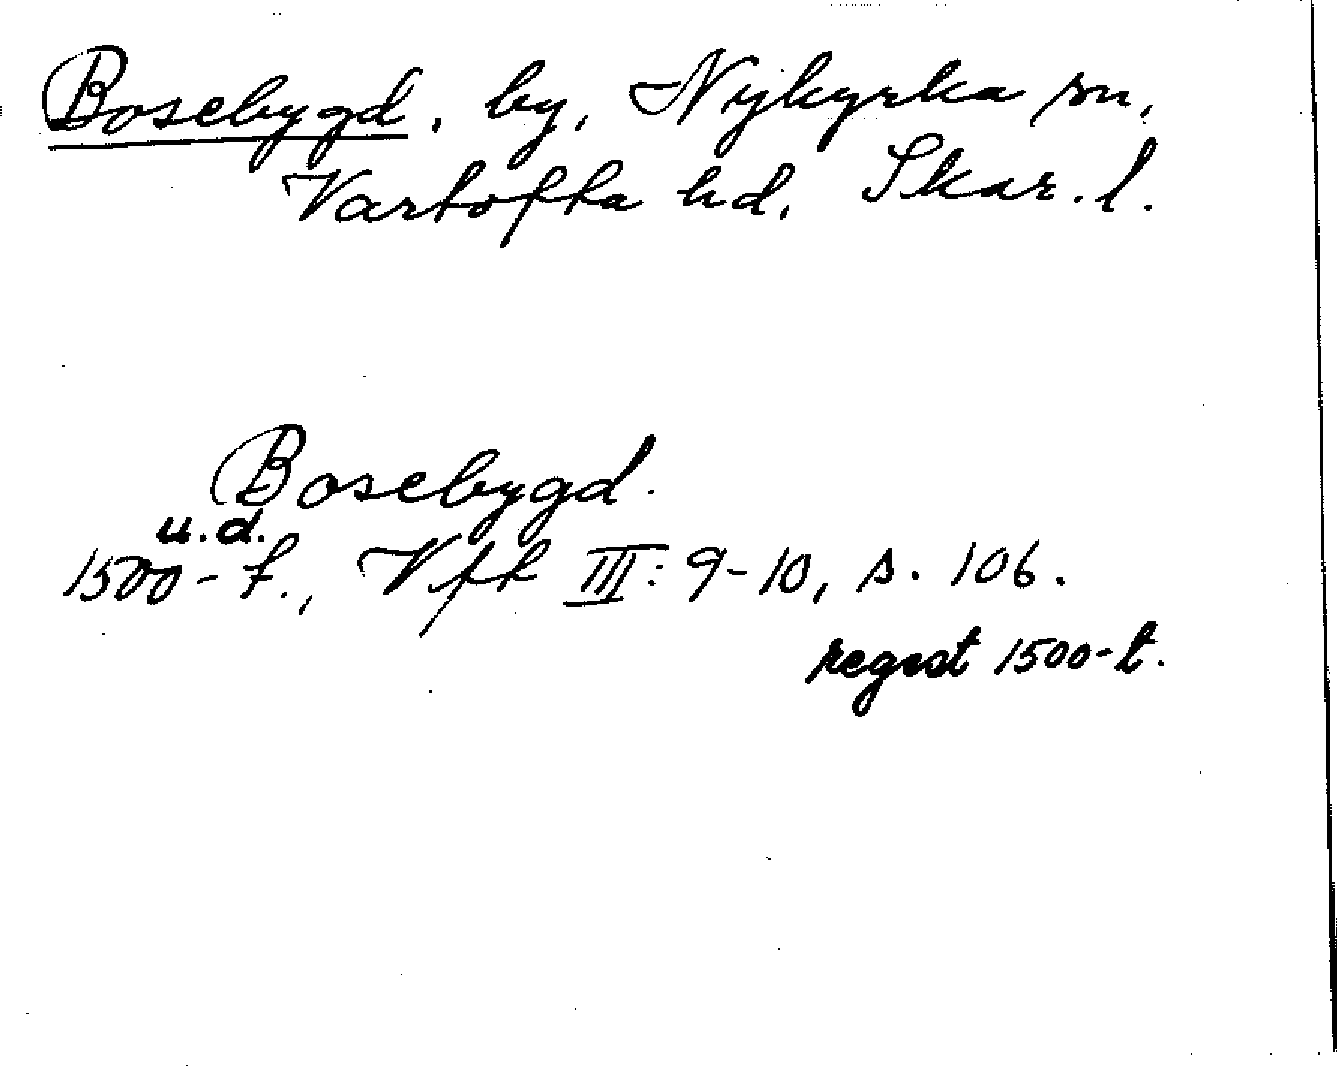 Bosebygd, by, Nykyrka sn,
Vartofta hd, Skar. l.
Bosebygd.
u.d.
1500-t., Vfk III: 9-10, s. 106.
regest 1500-t.